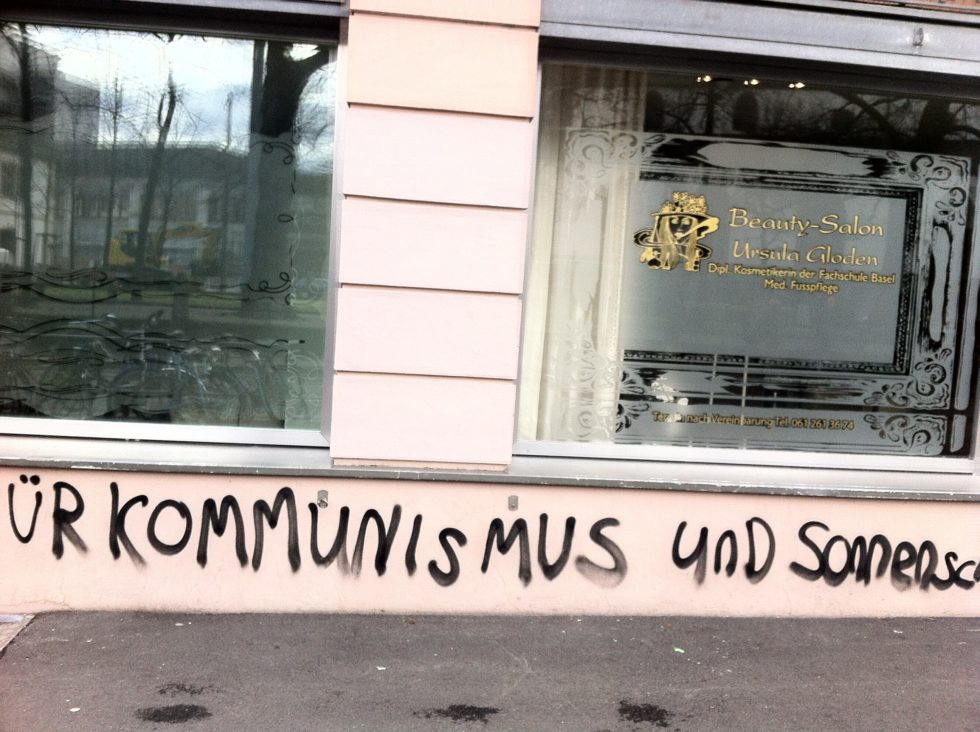 Beauty-Salon
Ursula Gloden
Dipl. Kosmetikerin der Fachschule Basel
Med. Fusspflege
Termin nach Vereinbarung Tel. 061 261 36 74
ÜR KOMMUNISMUS und SONNENSC